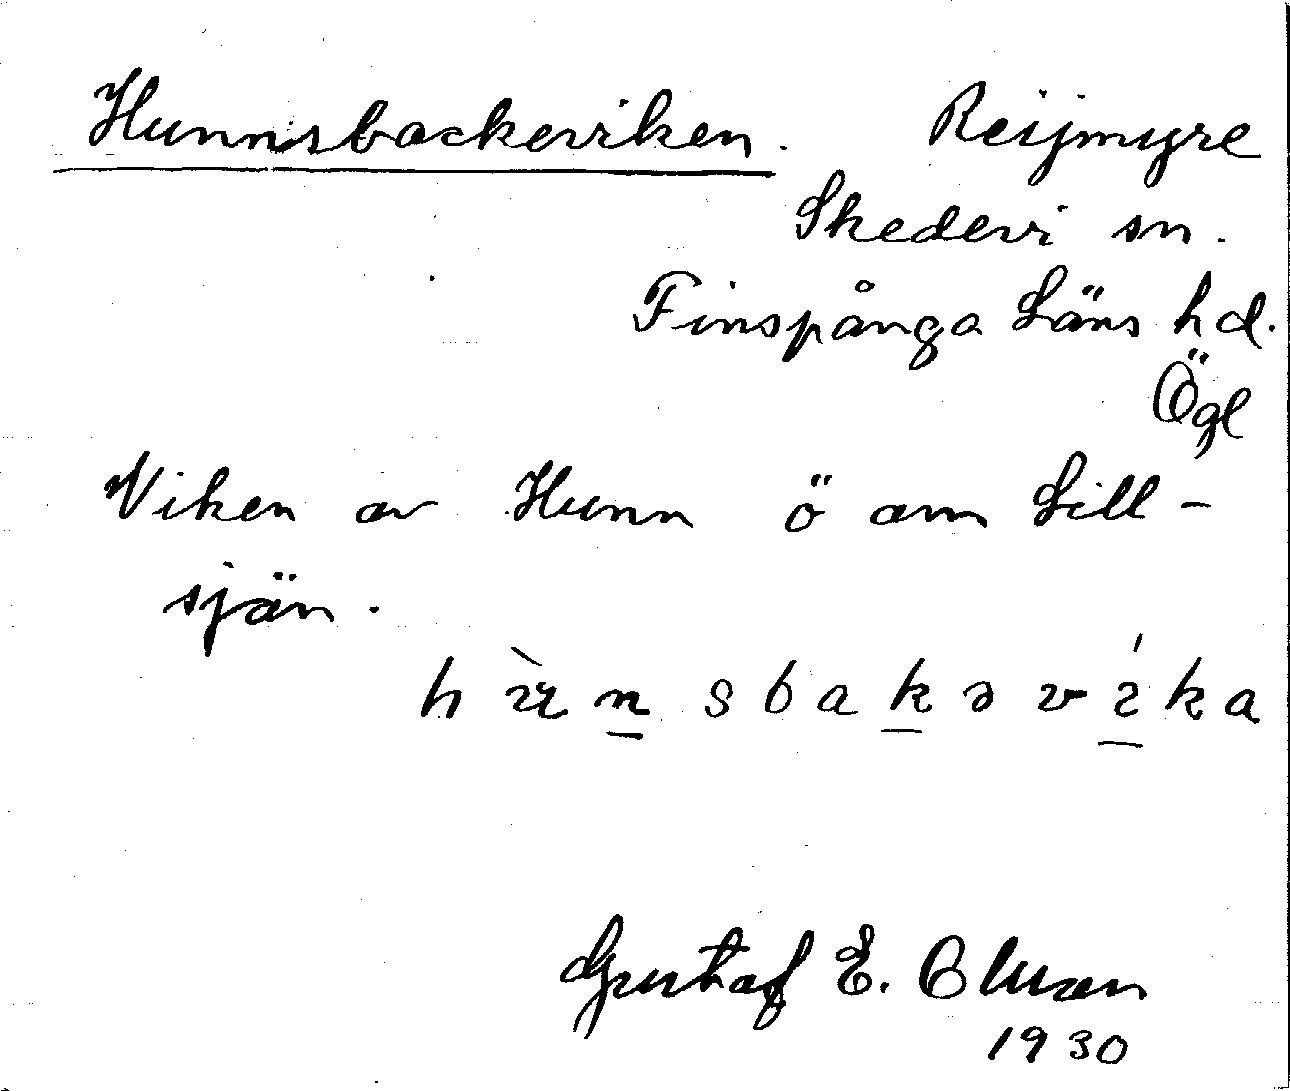 Hunnsbackeviken. Reijmyre
Skedevi sn.
Finspånga Läns hd.
Ögl
Viken av Hunn ö om Lill-
sjön.
Gustaf E.
1930